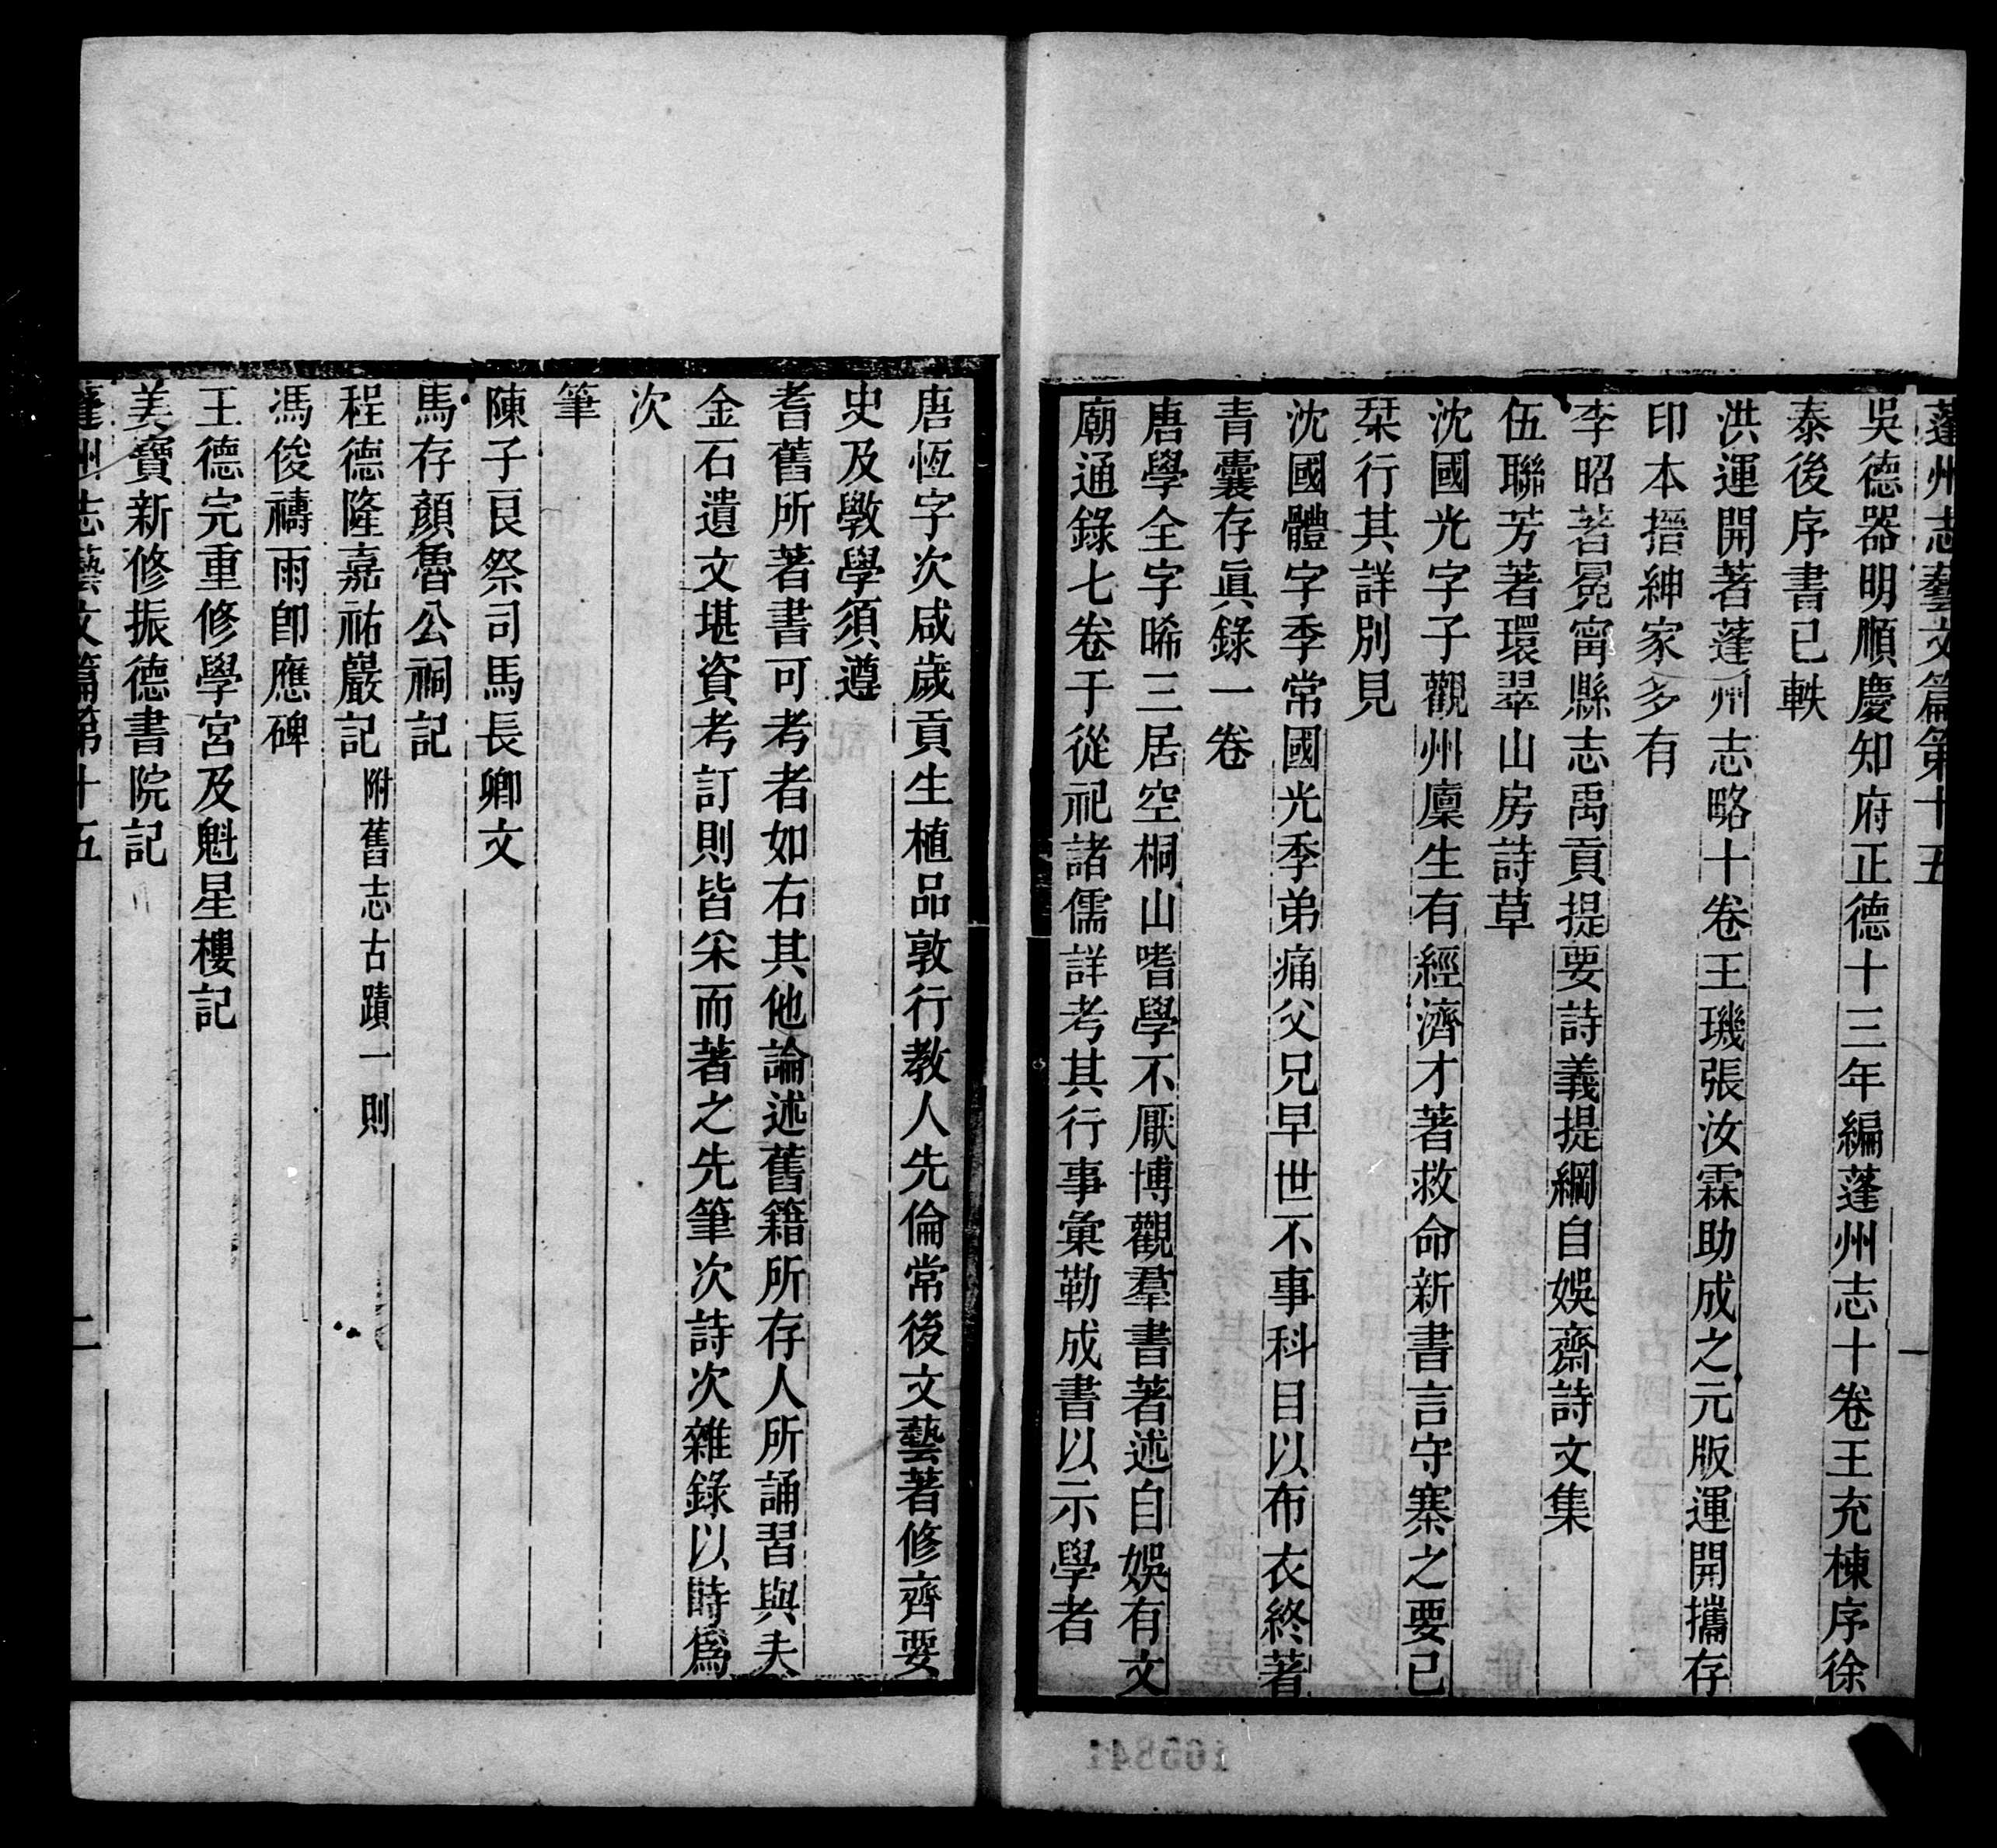 蓬州志藝文篇第十五 一
吳德器明順慶知府正德十三年編蓬州志十卷王充棟序徐
泰後序書已軼
洪運開著蓬州志略十卷王璣張汝霖助成之元版運開攜存
印本搢紳家多有
李昭著冕甯縣志禹貢提要詩義提綱自娛齋詩文集
伍聯芳著環翠山房詩草
沈國光字子觀州廩生有經濟才著救命新書言守寨之要已
栞行其詳別見
沈國體字季常國光季弟痛父兄早世不事科目以布衣終著
青囊存眞錄一卷
唐學全字晞三居空桐山嗜學不厭博觀羣書著述自娛有文
廟通錄七卷于從祀諸儒詳考其行事彙勒成書以示學者
唐恆字次咸歲貢生植品敦行教人先倫常後文藝著修齊要
史及斆學須遵
耆舊所著書可考者如右其他論述舊籍所存人所誦習與夫
金石遺文堪資考訂則皆采而著之先筆次詩次雜錄以時爲
次
筆
陳子良祭司馬長卿文
馬存顏魯公祠記
程德隆嘉祐巖記附舊志古蹟一則
馮俊禱雨卽應碑
王德完重修學宮及魁星樓記
姜寶新修振德書院記
蓬州志藝文篇第十五 二
165841